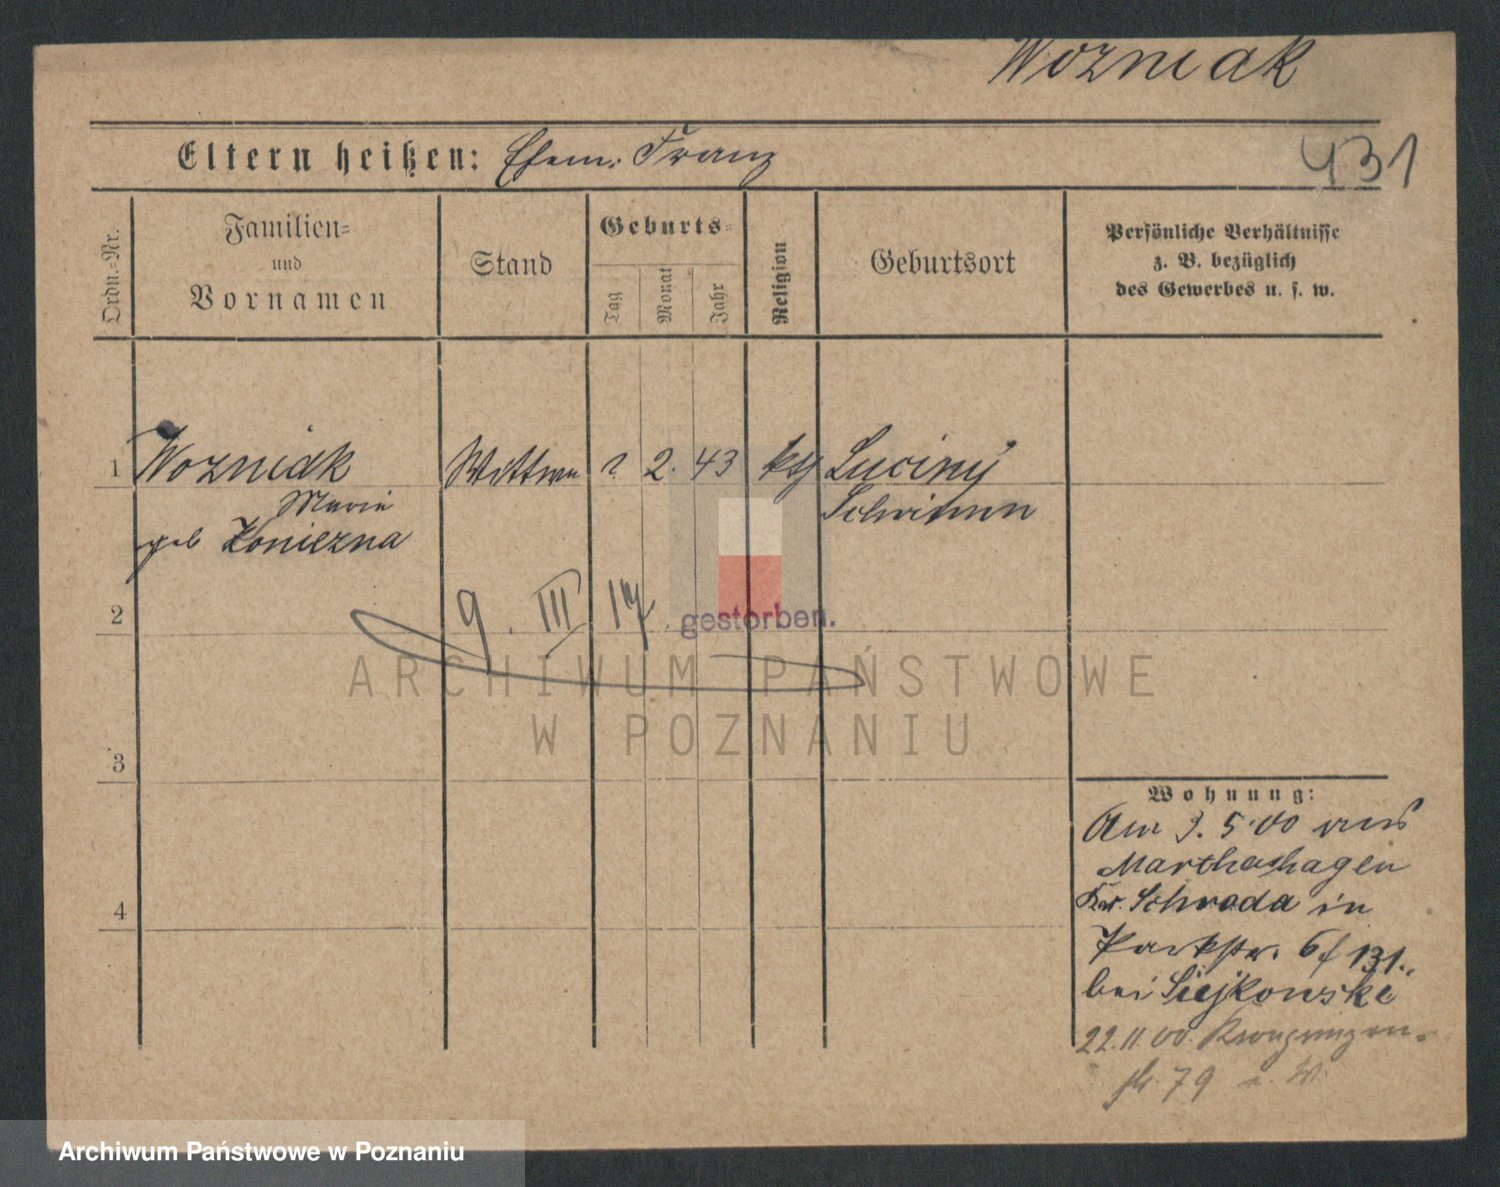 Wozniak
431
Eltern heißen: Ehem: Franz
Ordn.=Nr.
Familien=
und
Vornamen
Stand
Geburts=
Tag
Monat
Jahr
Religion
Geburtsort
Persönliche Verhältnisse
z. B. bezüglich
des Gewerbes u. s. w.
1 Wozniak Wittwe ? 2. 43 kth Luciny
Marie Schrimm
geb Koniezna
2 9. III 17. gestorben.
ARCHIWUM PAŃSTWOWE
W POZNANIU
3
Wohnung:
Am 3. 5. 00 aus
Marthashagen
4
Kr. Schroda in
Parkstr. 6 f 131.
bei Siejkowski
22.11.00. Kronprinzen-
str. 79
Archiwum Państwowe w Poznaniu